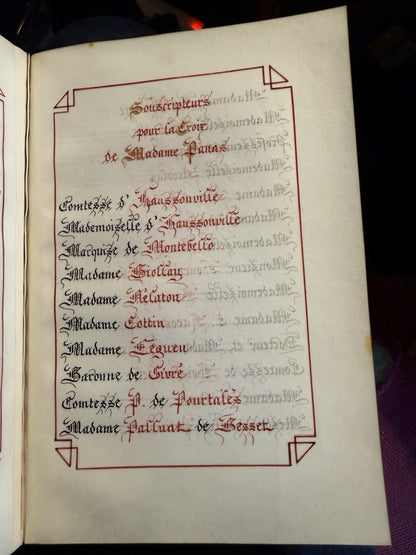 Souscripteurs
pour la Croix
de Madame Panas
Comtesse d'Haussonville
Mademoiselle d'Haussonville
Marquise de Montebello
Madame Giollay
Madame Nélaton
Madame Cottin
Madame
Baronne de Givré
Comtesse P. de Pourtalès
Madame Palluat de Besset